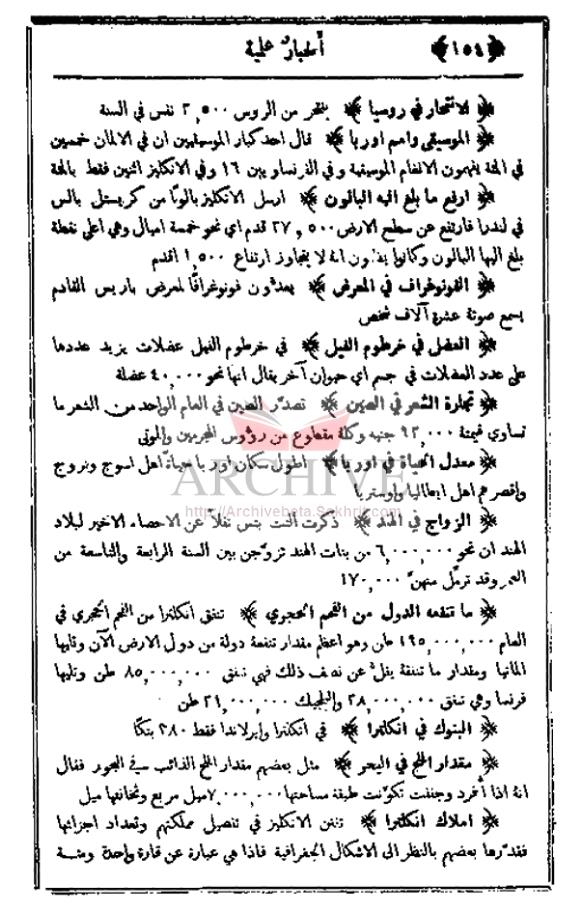 ﴿١٥٤﴾ أخبار علمية
﴿ الانتحار في روسيا ﴾ ينتحر من الروس ٢,٥٠٠ نفس في السنة
﴿ الموسيقى وامم اوربا ﴾ قال احد كبار الموسيقيين ان في الالمان خمسين
في المئة يفهمون الانغام الموسيقية وفي الفرنساويين ١٦ وفي الانكليز اثنين فقط بالمئة
﴿ ارفع ما بلغ اليه البالون ﴾ ارسل الانكليز بالونًا من كريستل بالس
في لندرا فارتفع عن سطح الارض ٢٧,٥٠٠ قدم اي نحو خمسة اميال وهي اعلى نقطة
بلغ اليها البالون وكانوا يظنون انه لا يتجاوز ارتفاع ١,٥٠٠ اقدم
﴿ الفونوغراف في المعرض ﴾ يعدّون فونوغرافًا لمعرض باريس القادم
يسمع صوته عشرة آلاف شخص
﴿ العضل في خرطوم الفيل ﴾ في خرطوم الفيل عضلات يزيد عددها
على عدد العضلات في جسم اي حيوان آخر يقال انها نحو ٤٠,٠٠٠ عضلة
﴿ تجارة الشعر في الصين ﴾ تصدّر الصين في العام الواحد من الشعر ما
تساوي قيمته ٩٢,٠٠٠ جنيه وكله مقطوع من رؤوس المجرمين والموتى
﴿ معدل الحياة في اوربا ﴾ اطول سكان اوربا حياةً اهل اسوج ونروج
واقصرهم اهل ايطاليا واوستريا
ARCHIVE
http://Archivebeta.Sakhrit.com
﴿ الزواج في الهند ﴾ ذكرت التت بتس نقلاً عن الاحصاء الاخير لبلاد
الهند ان نحو ٦,٠٠٠,٠٠٠ من بنات الهند تزوّجن بين السنة الرابعة والتاسعة من
العمر وقد ترمّل منهنّ ١٧٠,٠٠٠
﴿ ما تنفقه الدول من الفحم الحجري ﴾ تنفق انكلترا من الفحم الحجري في
العام ١٩٥,٠٠٠,٠٠٠ طن وهو اعظم مقدار تنفقه دولة من دول الارض الآن وتليها
المانيا ومقدار ما تنفقه يقلّ عن نصف ذلك فهي تنفق ٨٥,٠٠٠,٠٠٠ طن وتليها
فرنسا وهي تنفق ٢٨,٠٠٠,٠٠٠ والبلجيك ٢١,٠٠٠,٠٠٠ طن
﴿ البنوك في انكلترا ﴾ في انكلترا وايرلاندا فقط ٢٨٠ بنكًا
﴿ مقدار الملح في البحر ﴾ مثل بعضهم مقدار الملح الذائب في البحور فقال
انه اذا أفرد وجفف تكوّنت طبقة مساحتها ٧,٠٠٠,٠٠٠ ميل مربع وثخانتها ميل
﴿ املاك انكلترا ﴾ تفنن الانكليز في تفصيل مملكتهم وتعداد اجزائها
فقدّرها بعضهم بالنظر الى الاشكال الجغرافية فاذا هي عبارة عن قارة واحدة ومئة